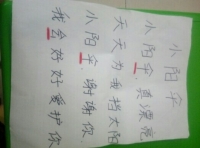 小阳伞
小阳伞,真漂亮
天天为我挡太阳
小阳伞,谢谢你
我会好好爱护你